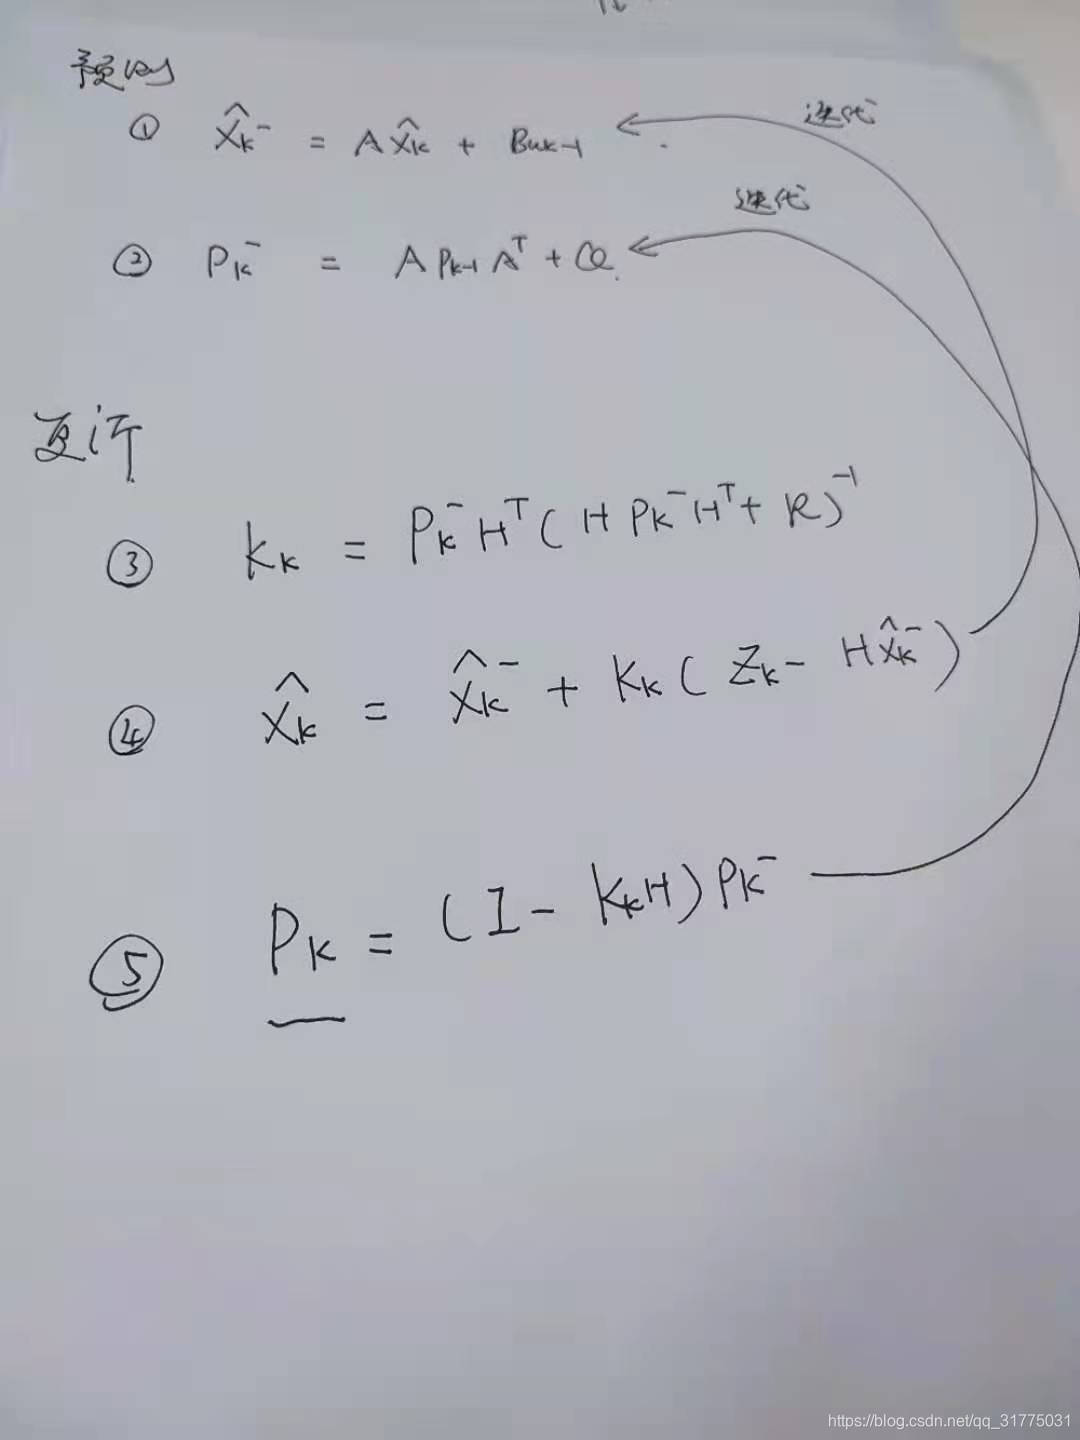 预测
① X̂ₖ⁻ = AX̂ₖ + Buₖ₋₁
迭代
② Pₖ⁻ = APₖ₋₁Aᵀ + Q
迭代
③ Kₖ = Pₖ⁻Hᵀ(HPₖ⁻Hᵀ + R)⁻¹
④ X̂ₖ = X̂ₖ⁻ + Kₖ(Zₖ - HX̂ₖ⁻)
⑤ Pₖ = (I - KₖH)Pₖ⁻
https://blog.csdn.net/qq_31775031